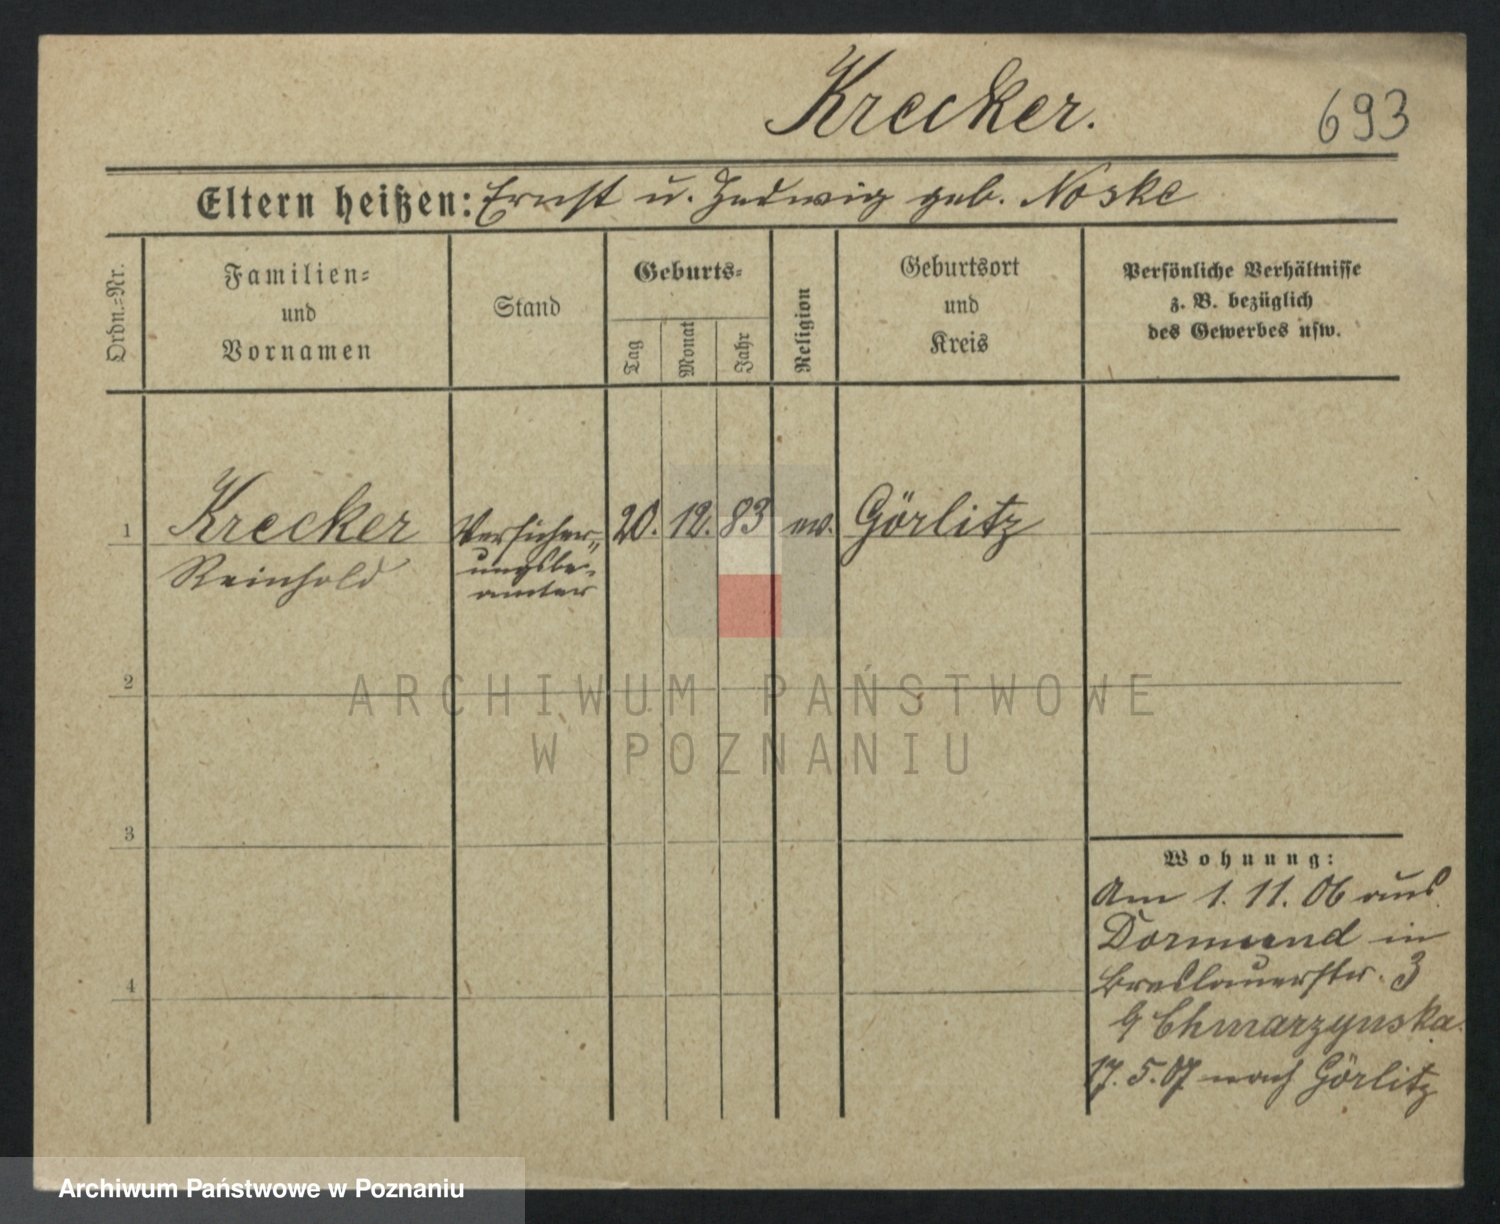 Krecker.
693
Eltern heißen: Ernst u. Hedwig geb. Noske
Ordn.=Nr.
Familien=
und
Vornamen
Stand
Geburts=
Tag
Monat
Jahr
Religion
Geburtsort
und
Kreis
Persönliche Verhältnisse
z. B. bezüglich
des Gewerbes usw.
1
Krecker
Reinhold
Versicher=
ungsbe=
amter
20. 12. 83
ev.
Görlitz
2
ARCHIWUM PAŃSTWOWE
W POZNANIU
3
4
Wohnung:
Am 1. 11. 06 aus
Dormund in
Breslauerstr. 3
Chmarzynska.
17. 5. 07 nach Görlitz
Archiwum Państwowe w Poznaniu